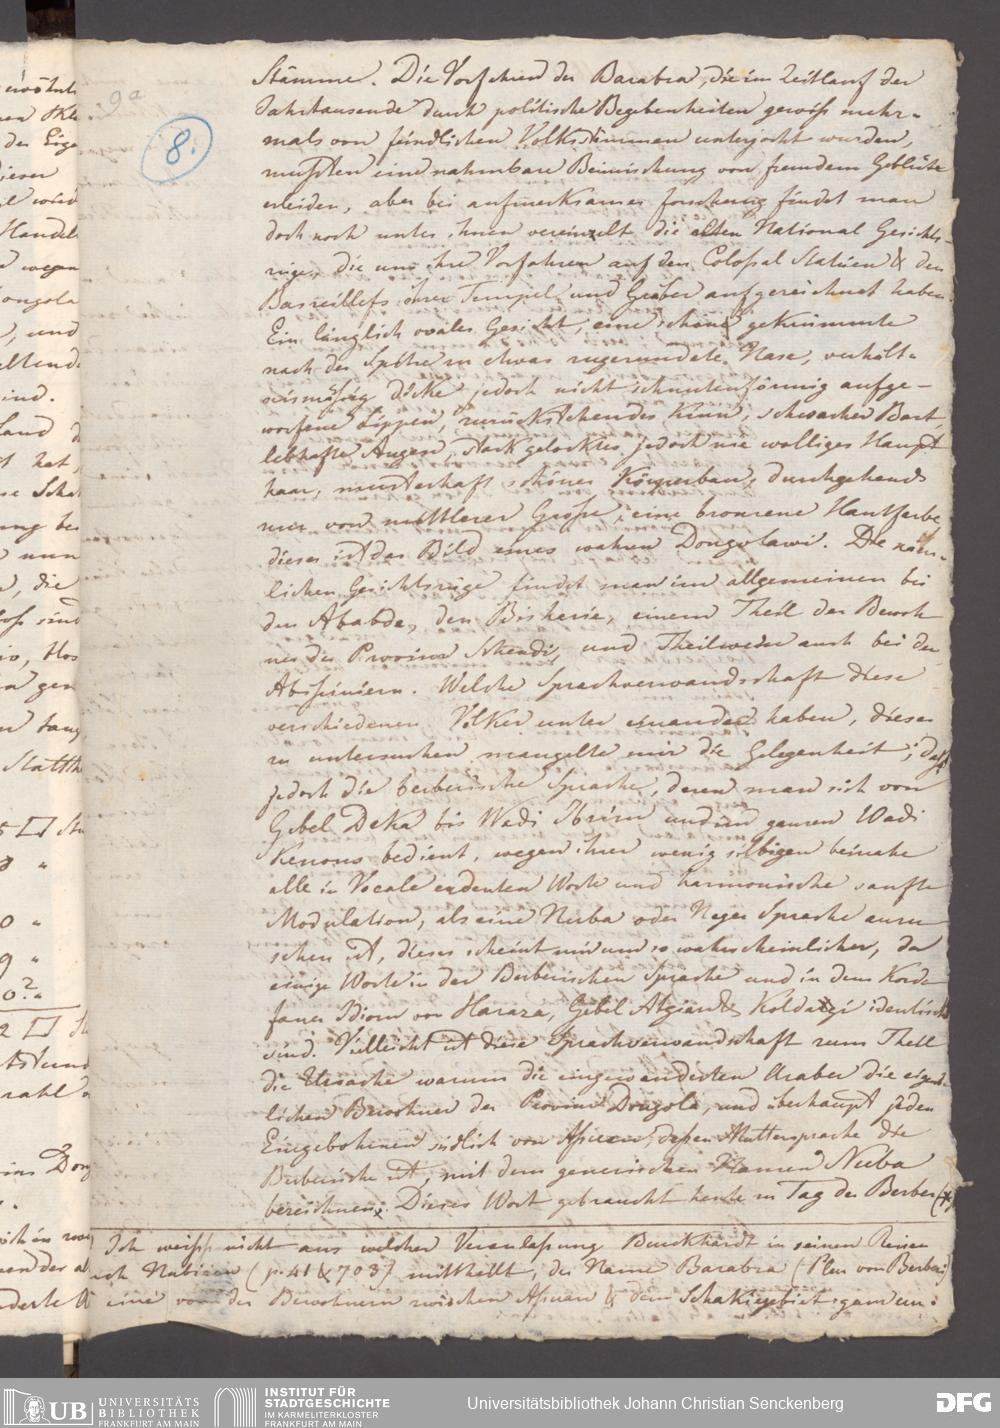 9a
8.
Stämme. Die Vorfahren der Barabra, die im Zeitlauf der
Jahrtausende durch politische Begebenheiten gewiss mehr-
mals von feindlichen Volksstämmen unterjocht wurden,
mussten eine nahmbare Beimischung von fremdem Geblüte
erleiden, aber bei aufmerksamer forschung findet man
doch noch unter ihnen vereinzelt die alten National Gesichts-
züge, die uns ihre Vorfahren auf den Colossal Statüen & den
Basreillefs ihrer Tempel und Gräber aufgezeichnet haben.
Ein länglich ovales Gesicht, eine schöne gekrümmte
nach der Spitze zu etwas zugerundete Nase, verhält-
nismäsig dicke jedoch nicht schnutenförmig aufge-
worfene Lippen, zurückstehendes Kinn, schwacher Bart,
lebhafte Augen, stark gelocktes jedoch nie wolliges Haupt
haar, musterhaft schöner Körperbau, durchgehends
nur von mittlerer Grösse, eine bronzene Hautfarbe
dieses ist das Bild eines wahren Dongolawi. Die näm-
lichen Gesichtszüge findet man im allgemeinen bei
den Ababde, den Bisherie, einem Theil der Bewoh
ner der Provinz Schendi, und Theilweise auch bei den
Abissiniern. Welche Sprachverwandschaft diese
verschiedenen Völker unter einander haben, dieses
zu untersuchen mangelte mir die Gelegenheit; dass
jedoch die berberische Sprache, deren man sich von
Gebel Deka bis Wadi Ibrim und im ganzen Wadi
Kenous bedient, wegen ihrer wenig silbigen beinahe
alle in Vocale endenten Worte und harmonische sanfte
Modulation, als eine Nuba oder Neger Sprache anzu
sehen ist, dieses scheint mir um so wahrscheinlicher, da
einige Worte in der Berberischen Sprache und in dem Kordo
faner Idiom von Haraza, Gebel Atgian & Koldagi identisch
sind. Vielleicht ist diese Sprachverwandschaft zum Theil
die Ursache warum die eingewanderten Araber die eigent-
lichen Bewohner der Provinz Dongola, und überhaupt jeden
Eingebohrnen südlich von Assuan, dessen Muttersprache die
Berberische ist, mit dem generischen Namen Nuba
bezeichnen. Dieses Wort gebraucht heute zu Tag der Berber (*)
Ich weiss nicht aus welcher Veranlassung Burckhardt in seinen Reisen
nach Nubien (p. 41 & 703) mittheilt, der Name Barabra (Plur von Berberi)
eine von den Bewohnern zwischen Assuan & dem Schakiegebiet ganz un:
UNIVERSITÄTS
BIBLIOTHEK
FRANKFURT AM MAIN
INSTITUT FÜR
STADTGESCHICHTE
IM KARMELITERKLOSTER
FRANKFURT AM MAIN
Universitätsbibliothek Johann Christian Senckenberg
DFG